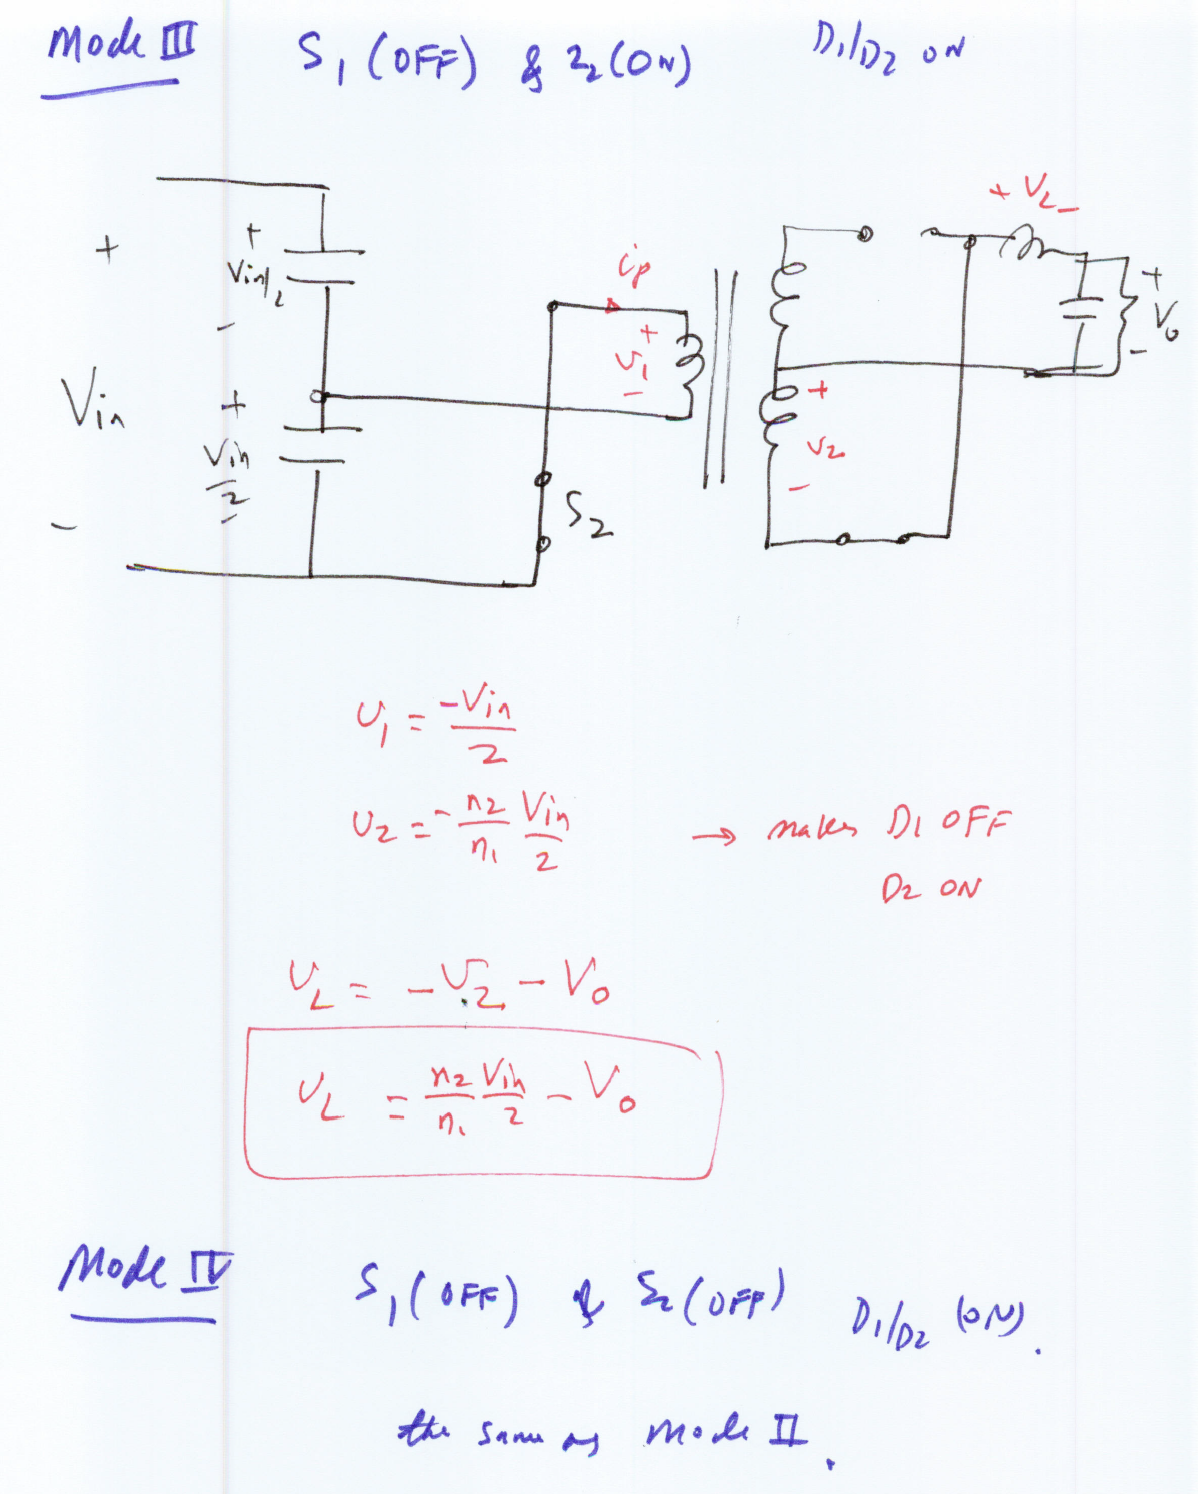 Mode III S1 (OFF) & S2 (ON) D1/D2 ON
+ VL -
+ Vin/2 -
+ Vin -
+ Vin/2 -
ip
+ V1 -
+ V2 -
+ Vo -
S2
V1 = -Vin/2
V2 = - n2/n1 Vin/2 → makes D1 OFF
D2 ON
VL = -V2 - Vo
VL = n2/n1 Vin/2 - Vo
Mode IV S1 (OFF) & S2 (OFF) D1/D2 (ON).
the same as Mode II.